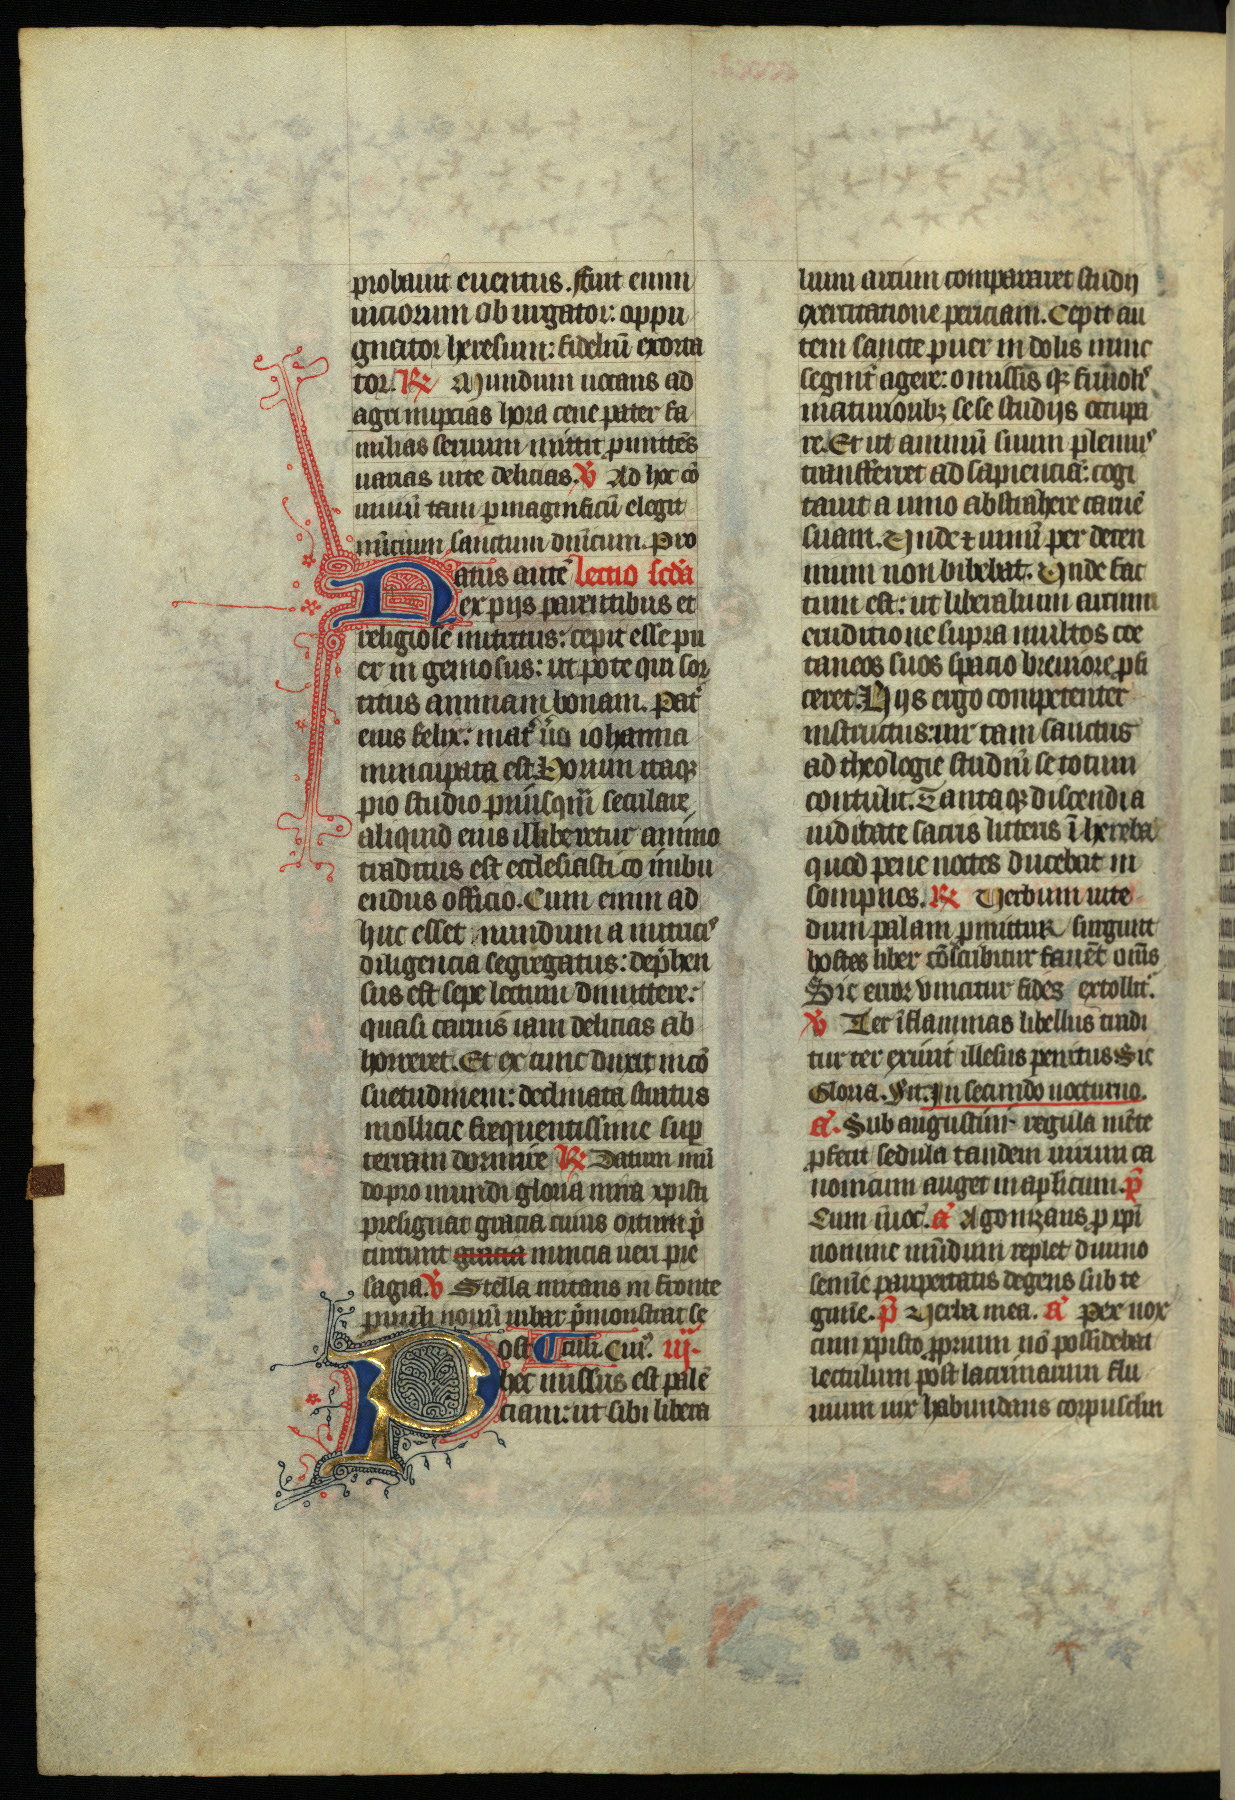 probauit euentus. ffuit enim
uiciorum ab iurgator: oppu
gnator heresum: fideliū exorta
tor. R Mundum uocans ad
agni nupcias hora cene pater fa
milias seruum mittit p̱mittēs
uarias uite delicias. V Ad hoc cō
uiuiū tam p̱magnificū elegit
nūcium sanctum dn̄icum. Pro
Natus autē lectio scd̄a
ex pijs parentibus et
religiose nutritus: cepit esse pu
er in geniosus: ut pote qui sor
titus animam bonam. Pat᷒
eius felix: mat᷒ ūo iohanna
nuncupata est. Horum itaqꝫ
pio studio priusqm̄ seculare
aliquid eius illiberetur animo
traditus est ecclesiastico īnbu
endus officio. Cum enim ad
huc esset nundum a nutricꝰ
diligencia segregatus: dep̄hen
sus est sepe lectum dimittere:
quasi carnis iam delicias ab
horreret. Et ex tunc duxit in cō
suetudinem: declinata stratus
mollicie frequentissime sup̱
terram dormire R Datum mū
do pro mundi gloria mira xpisti
presignat gracia cuius ortum p̄
cinunt gracia nuncia ueri pre
sagia. V Stella mitans in fronte
p̱uuli nouū iubar p̄monstrat se
Post Tculi. Cuiꝰ. iij.
hec missus est palē
ciam: ut sibi libera
lium artium compararet studij
exercitatione periciam. Cepit au
tem sancte puer in dolis nunc
segnit᷒ agere: omissis qꝫ friuolꝭ
maturioribꝫ sese studijs occupa
re. Et ut animū suum pleniuꝰ
transferret ad sapienciā: cogi
tauit a uino abstrahere carnē
suam. Unde ⁊ uinū per decen
nium non bibebat. Unde fac
tum est: ut liberalium artium
eruditione supra multos coe
taneos suos spacio breuiore p̱fi
ceret. Hijs ergo competenter
instructus: uir tam sanctus
ad theologie studiū se totum
contulit. Tantaqꝫ discendi a
uiditate sacris litteris īhereba
quod pene noctes ducebat in
sompnes. R Verbum uite
dum palam p̱mittur surgunt
hostes liber cōscribitur fauēt om̄s
Sic error vincitur fides extollit᷒.
V Ter ī flammas libellus tradi
tur ter exiuit illesus penitus Sic
Gloria. Sit. In secundo nocturno.
a. Sub augustini regula mēte
p̱fecit sedula tandem uirum ca
nonicum auget in ap̱licum. p̄
Cum īuoc᷒. a Agonizans p̱ xp̄i
nomine mūdum replet diuino
semīe paup̱tatis degens sub te
gmīe. p̄ Verba mea. a Per nox
cum xpisto p̱prium nō possidebat
lectulum post lacrimarum flu
uium uix habundans corpusclm